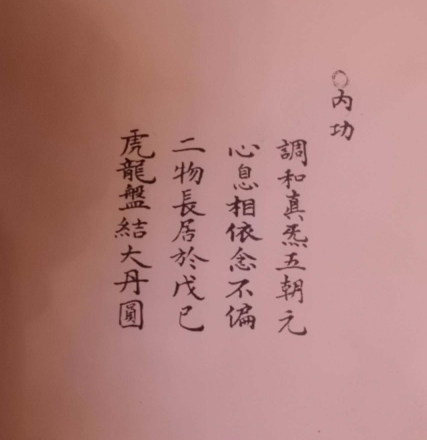 ○內功
調和真炁五朝元
心息相依念不偏
二物長居於戊己
虎龍盤結大丹圓